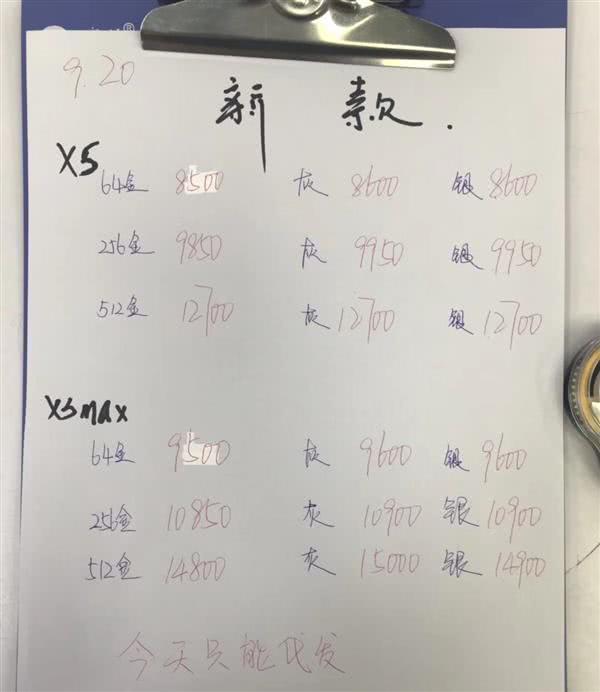 9.20
新 款.
XS
64金 8500 灰 8600 银 8600
256金 9850 灰 9950 银 9950
512金 12700 灰 12700 银 12700
XSMAX
64金 9500 灰 9600 银 9600
256金 10850 灰 10900 银 10900
512金 14800 灰 15000 银 14900
今天只能代发